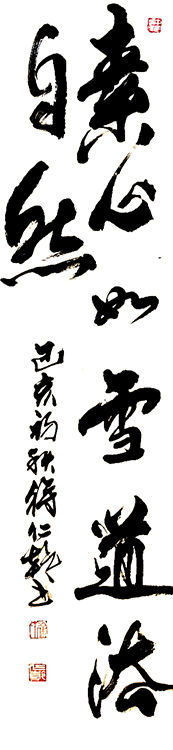 素心如雪道法
自然
己亥初秋徐仁龙书